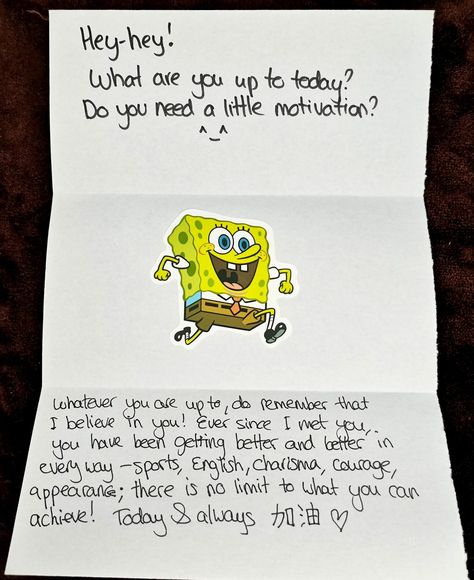 Hey-hey!
What are you up to today?
Do you need a little motivation?
^_^
Whatever you are up to, do remember that
I believe in you! Ever since I met you,
you have been getting better and better in
every way – sports, English, charisma, courage,
appearance; there is no limit to what you can
achieve! Today & always 加油 ♡